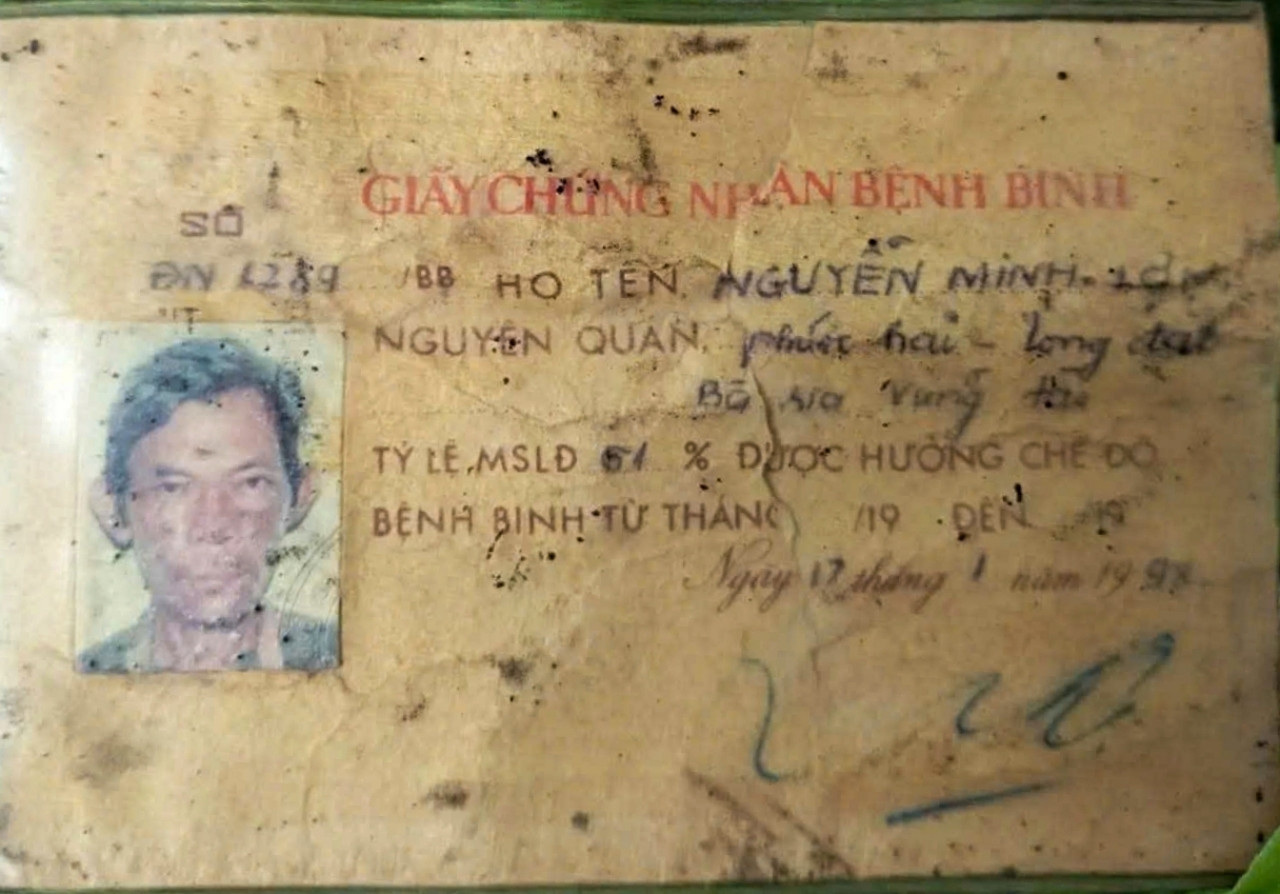 GIẤY CHỨNG NHẬN BỆNH BINH
SỐ
ĐN 1289 /BB HỌ TÊN NGUYỄN MINH
NGUYÊN QUÁN phước hải - Long đất
Bà rịa Vũng tàu
TỶ LỆ MSLĐ 61 % ĐƯỢC HƯỞNG CHẾ ĐỘ
BỆNH BINH TỪ THÁNG /19 ĐẾN /19
Ngày 17 tháng 1 năm 19